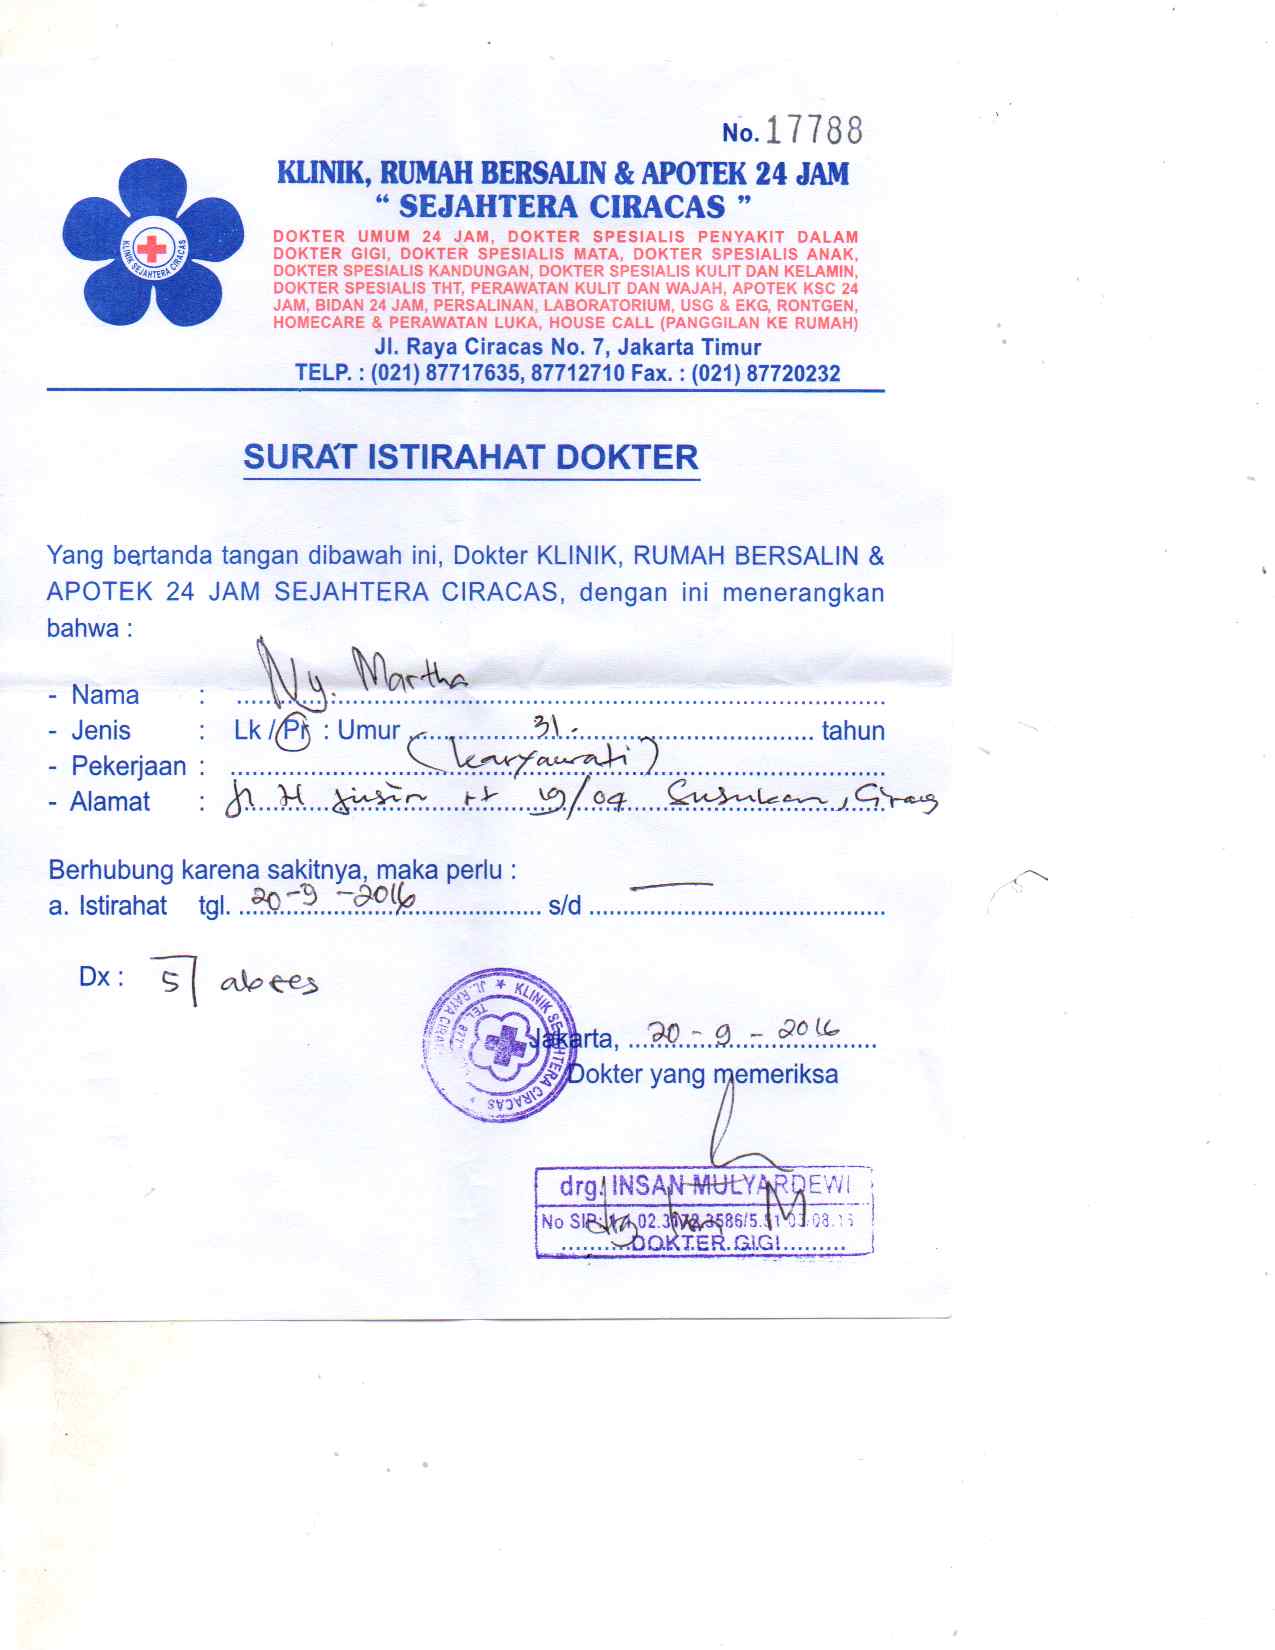 No. 17788
KLINIK, RUMAH BERSALIN & APOTEK 24 JAM
“ SEJAHTERA CIRACAS ”
DOKTER UMUM 24 JAM, DOKTER SPESIALIS PENYAKIT DALAM
DOKTER GIGI, DOKTER SPESIALIS MATA, DOKTER SPESIALIS ANAK,
DOKTER SPESIALIS KANDUNGAN, DOKTER SPESIALIS KULIT DAN KELAMIN,
DOKTER SPESIALIS THT, PERAWATAN KULIT DAN WAJAH, APOTEK KSC 24
JAM, BIDAN 24 JAM, PERSALINAN, LABORATORIUM, USG & EKG, RONTGEN,
HOMECARE & PERAWATAN LUKA, HOUSE CALL (PANGGILAN KE RUMAH)
Jl. Raya Ciracas No. 7, Jakarta Timur
TELP. : (021) 87717635, 87712710 Fax. : (021) 87720232
KLINIK SEJAHTERA CIRACAS
SURAT ISTIRAHAT DOKTER
Yang bertanda tangan dibawah ini, Dokter KLINIK, RUMAH BERSALIN &
APOTEK 24 JAM SEJAHTERA CIRACAS, dengan ini menerangkan
bahwa :
- Nama : Ny. Martha
- Jenis : Lk / Pr : Umur 31 tahun
- Pekerjaan : (karyawati)
- Alamat : Jl H Jusin rt /04 Susukan, Ciracas
Berhubung karena sakitnya, maka perlu :
a. Istirahat tgl. 20-9-2016 s/d —
Dx : 5 abses
KLINIK SEJAHTERA CIRACAS
JL. RAYA
TEL. 877
Jakarta, 20-9-2016
Dokter yang memeriksa
drg. INSAN MULYARDEWI
No SIP:
DOKTER GIGI